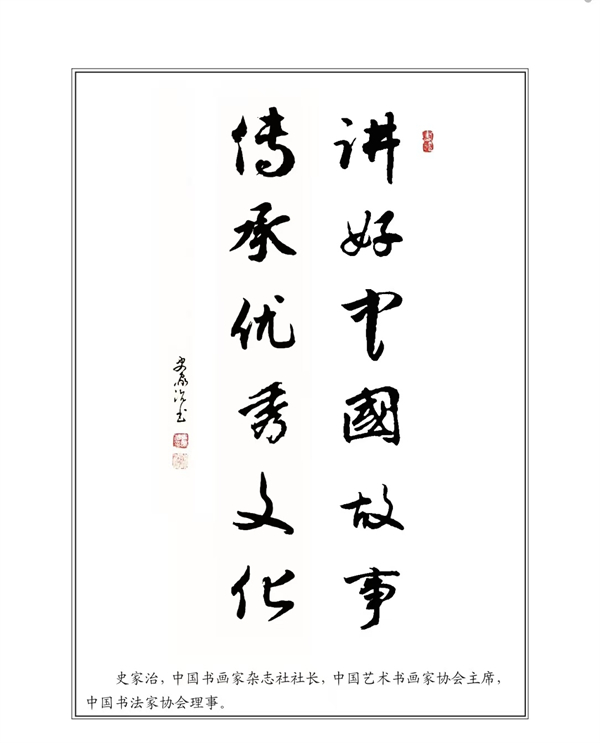 讲好中國故事
传承优秀文化
史家治书
史家治，中国书画家杂志社社长，中国艺术书画家协会主席，
中国书法家协会理事。